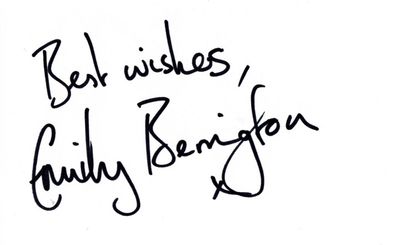 Best wishes,
Emily Berrington
x